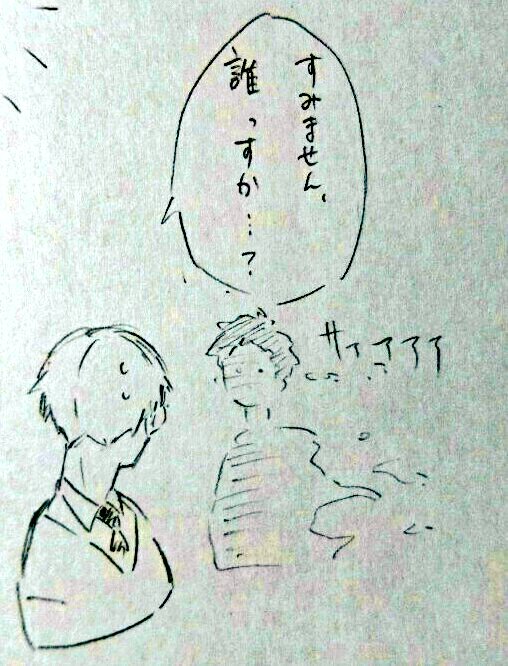 すみません、
誰っすか…?
サァァァァ